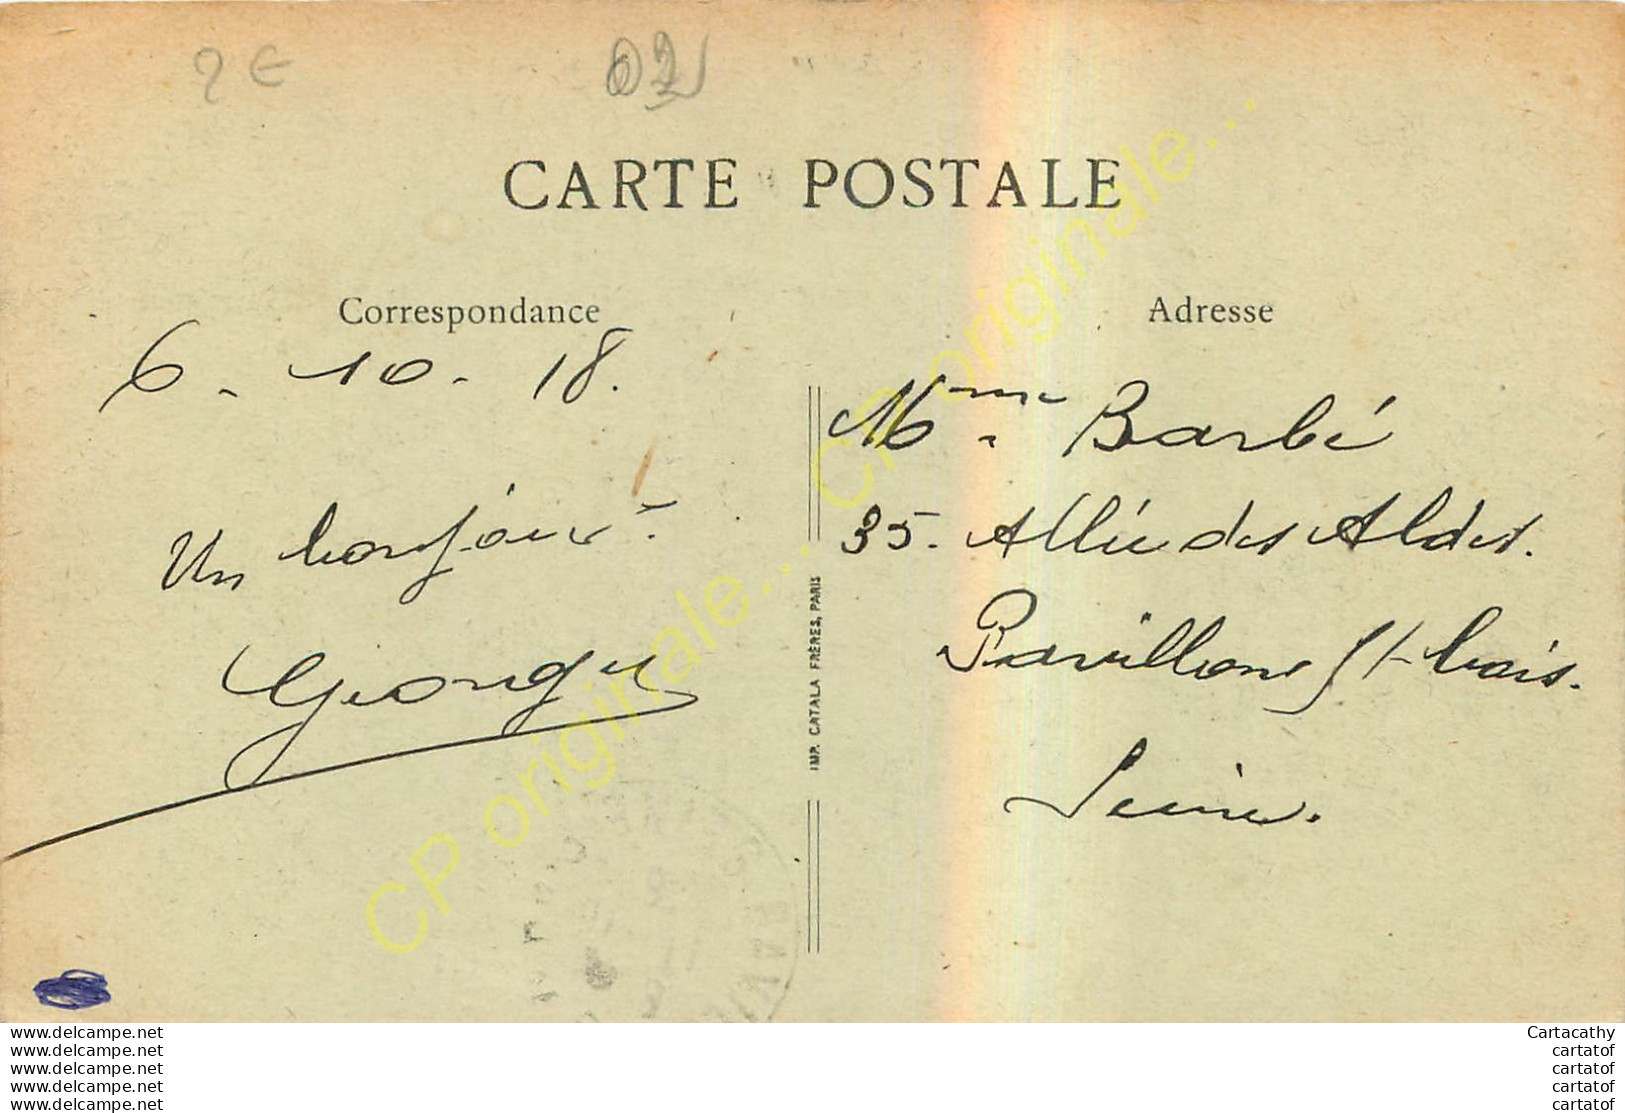 2 €
02
CARTE POSTALE
Correspondance
6 - 10 - 18.
Un bonjour.
Georges
IMP. CATALA FRÈRES, PARIS
Adresse
Mme Barbé
35. Allée des Aldes.
Pavillons s/s bois.
Seine.
CP originale... CP originale...
www.delcampe.net
www.delcampe.net
www.delcampe.net
www.delcampe.net
www.delcampe.net
Cartacathy
cartatof
cartatof
cartatof
cartatof